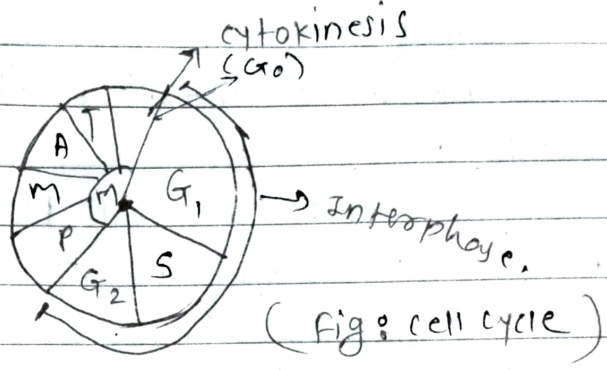 cytokinesis
(G0)
T
A
M
M
G1
→ Interphase.
P
S
G2
(Fig: cell cycle)